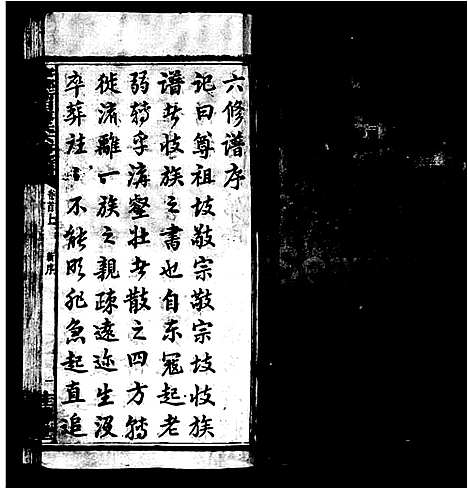 六修譜序
記曰尊祖故敬宗敬宗故收族
譜者收族之書也自東寇起老
弱轉乎溝壑壯者散之四方轉
徙流離一族之親疎遠邇生沒
卒葬註不能明非急起直追
卷首上
新序